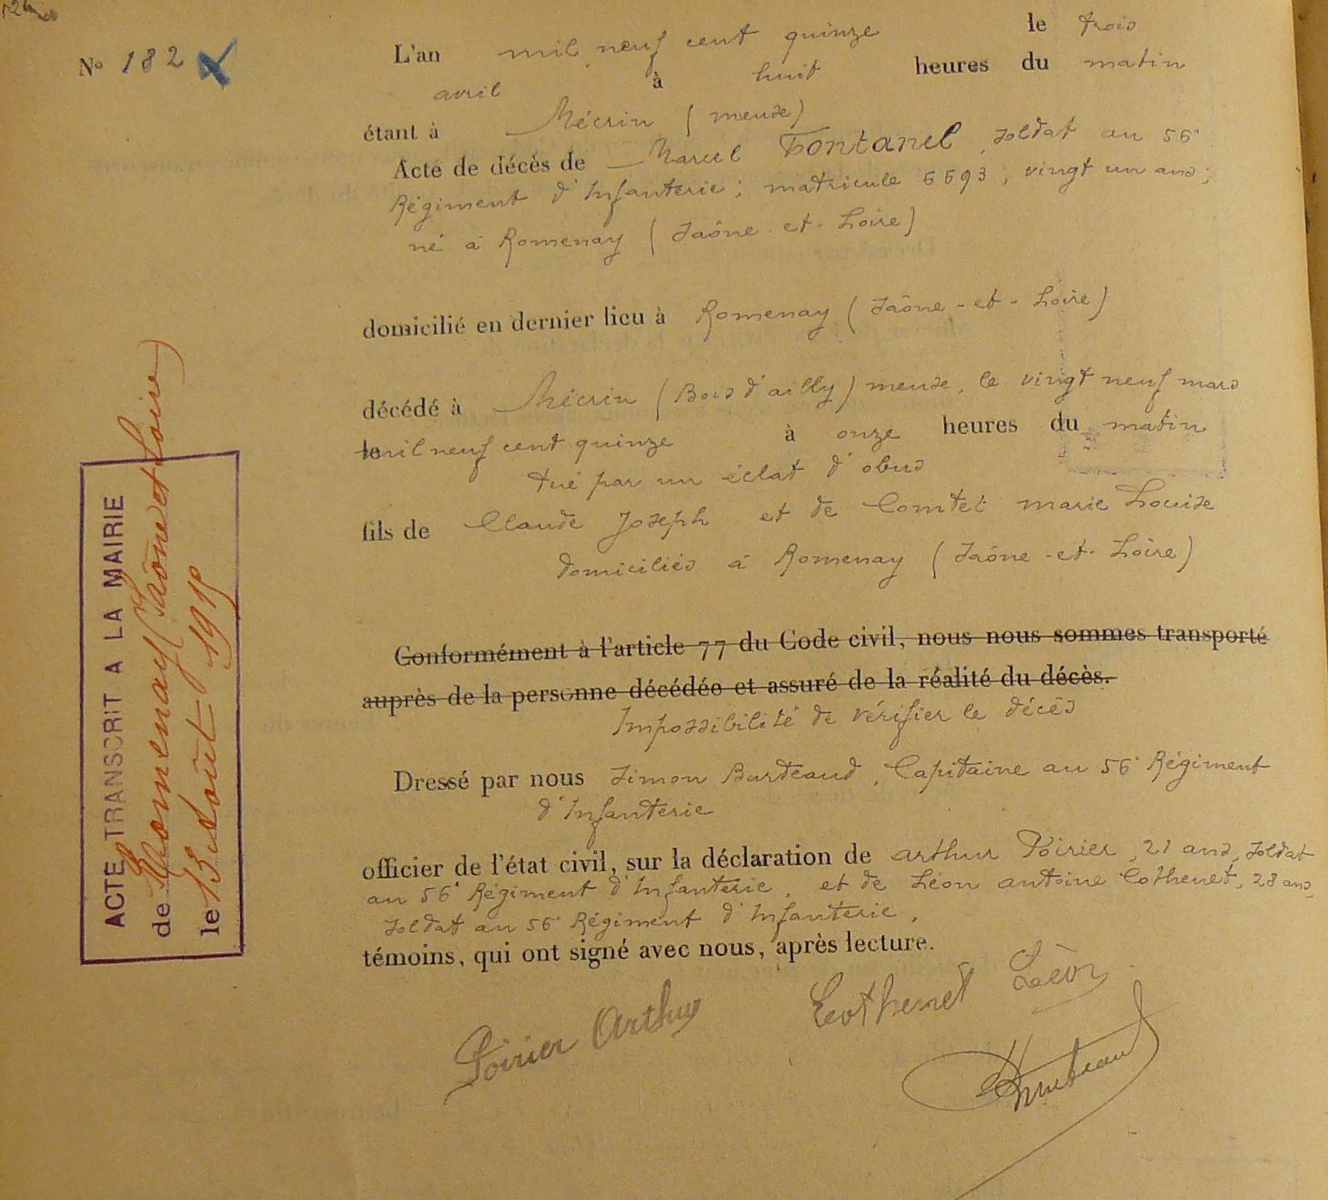 N° 182
L'an mil neuf cent quinze le trois
avril à huit heures du matin
étant à Mécrin (meuse)
Acte de décès de Marcel Fontanel, soldat au 56e
Régiment d'Infanterie; matricule 6693, vingt un ans;
né à Romenay (Saône-et-Loire)
domicilié en dernier lieu à Romenay (Saône-et-Loire)
décédé à Mécrin (Bois d'ailly) meuse, le vingt neuf mars
le mil neuf cent quinze à onze heures du matin
tué par un éclat d'obus
fils de Claude Joseph et de Comtet marie Louise
domiciliés à Romenay (Saône-et-Loire)
Conformément à l'article 77 du Code civil, nous nous sommes transporté
auprès de la personne décédée et assuré de la réalité du décès.
Impossibilité de vérifier le décès
Dressé par nous Simon Burteaud, Capitaine au 56e Régiment
d'Infanterie
officier de l'état civil, sur la déclaration de arthur Poirier, 21 ans, soldat
au 56e Régiment d'Infanterie, et de Léon antoine Cothenet, 28 ans,
soldat au 56e Régiment d'Infanterie,
témoins, qui ont signé avec nous, après lecture.
Poirier Arthur Cothenet Léon
ACTE TRANSCRIT A LA MAIRIE
de Romenay (Saône et Loire)
le 13 août 1915